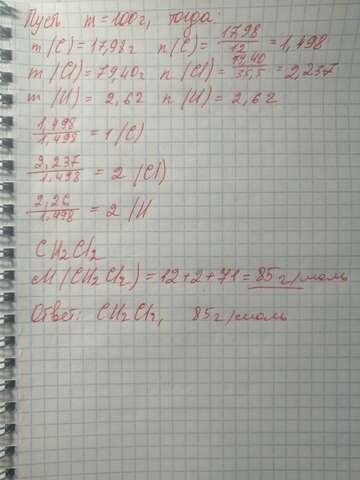 Пусть m = 100г, тогда:
m(C) = 17,98г n(C) = 17,98/12 = 1,498
m(Cl) = 79,40г n(Cl) = 79,40/35,5 = 2,237
m(H) = 2,62 n(H) = 2,62
1,498/1,498 = 1(C)
2,237/1,498 = 2(Cl)
2,26/1,498 = 2(H
CH₂Cl₂
M(CH₂Cl₂) = 12+2+71 = 85г/моль
Ответ: CH₂Cl₂, 85г/моль